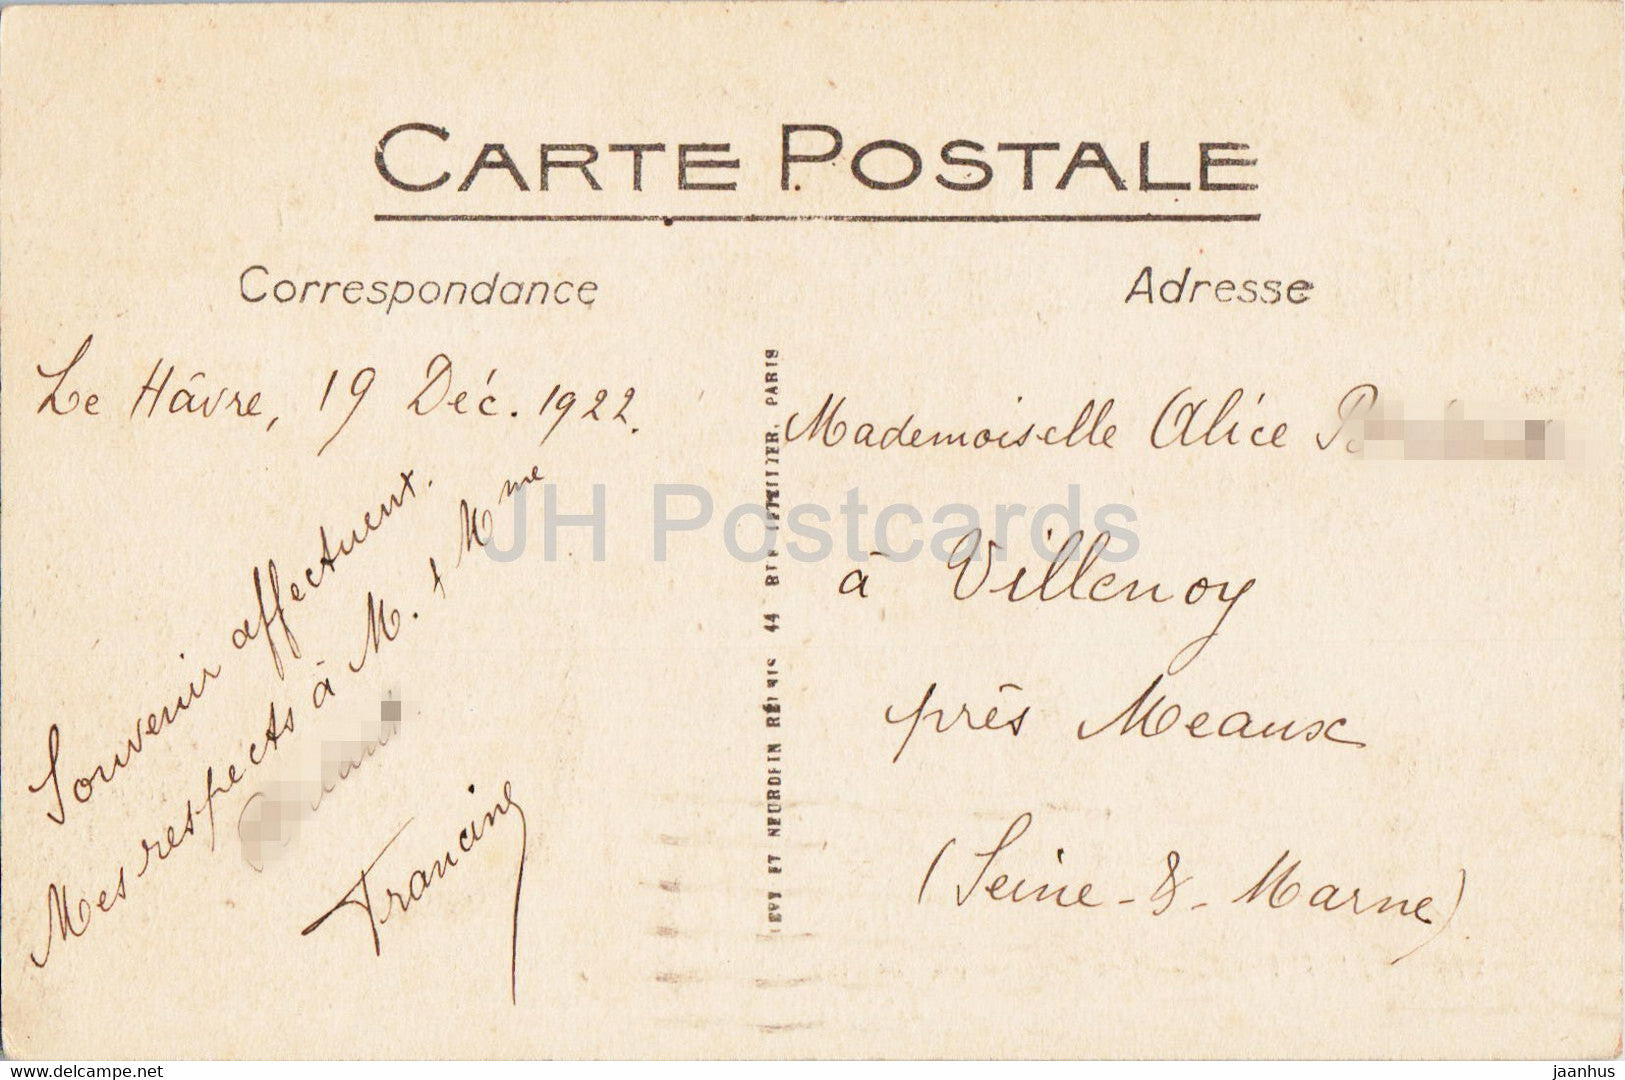 CARTE POSTALE
Correspondance
Adresse
Le Hâvre, 19 Déc. 1922.
Souvenir affectueux.
Mes respects à M. & Mme
Francine
LEVY ET NEURDEIN RÉUNIS 44 PARIS
Mademoiselle Alice
à Villenoy
près Meaux
(Seine-&-Marne)
JH Postcards
www.delcampe.net
jaanhus